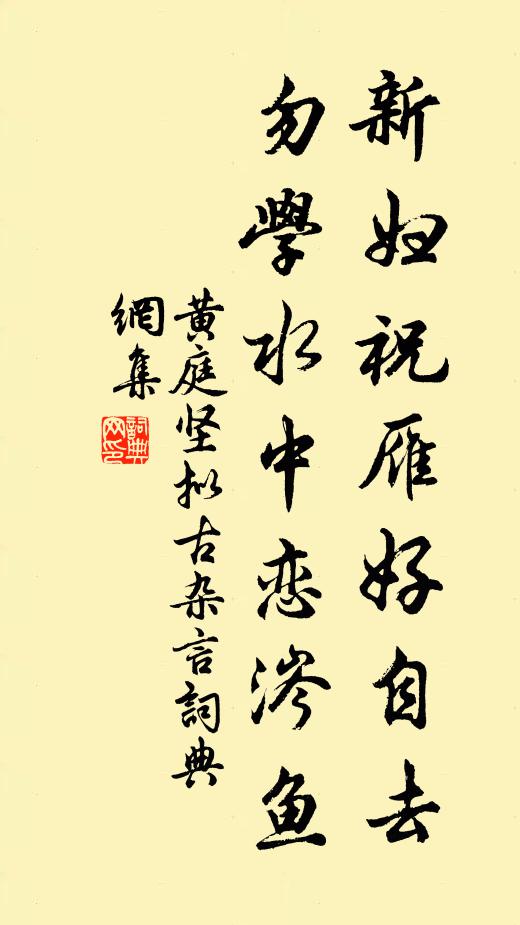 新妇祝雁好自去
勿學水中恋涔鱼
黄庭坚拟古杂言詞典
網集
詞典
网印